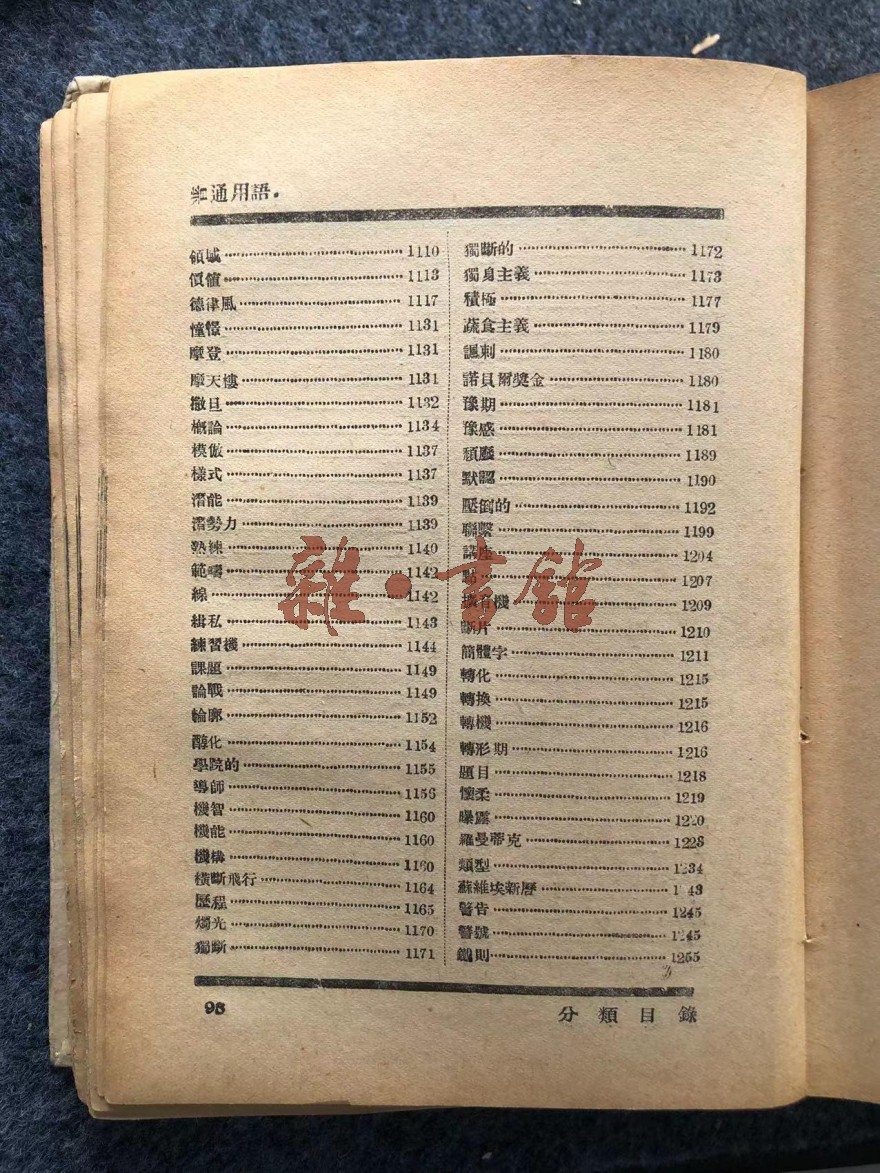 普通用語.
領域 1110
價值 1113
德律風 1117
憧憬 1131
摩登 1131
摩天樓 1131
撒旦 1132
概論 1134
模倣 1137
樣式 1137
潛能 1139
潛勢力 1139
熟練 1140
範疇 1142
線 1142
緝私 1143
練習機 1144
課題 1149
論戰 1149
輪廓 1152
醇化 1154
學院的 1155
導師 1156
機智 1160
機能 1160
機構 1160
橫斷飛行 1164
歷程 1165
燭光 1170
獨斷 1171
獨斷的 1172
獨身主義 1173
積極 1177
蔬食主義 1179
諷刺 1180
諾貝爾獎金 1180
豫期 1181
豫感 1181
頹廢 1189
默認 1190
壓倒的 1192
聯繫 1199
講座 1204
點 1207
擴音機 1209
斷片 1210
簡體字 1211
轉化 1215
轉換 1215
轉機 1216
轉形期 1216
題目 1218
懷柔 1219
曝露 1220
羅曼蒂克 1228
類型 1234
蘇維埃新曆
警告 1245
警號 1245
鐵則 1255
分類目錄
雜·書館